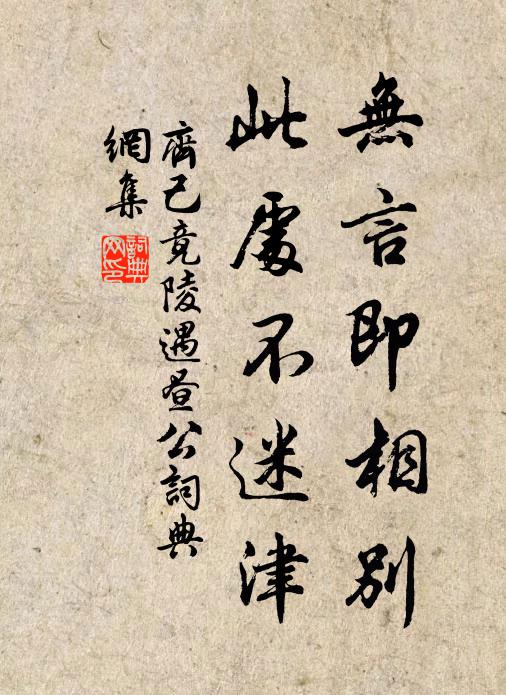 無言即相別
此處不迷津
齊己竟陵遇晝公詞典
網集
詞典
网印